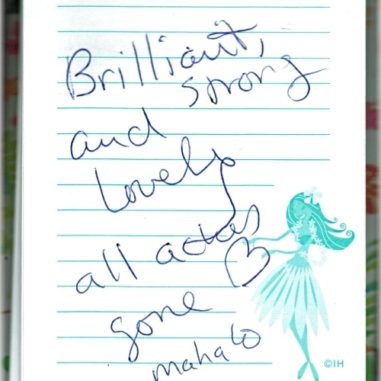 Brilliant,
strong
and
Lovely
all
gone
mahalo
©IH